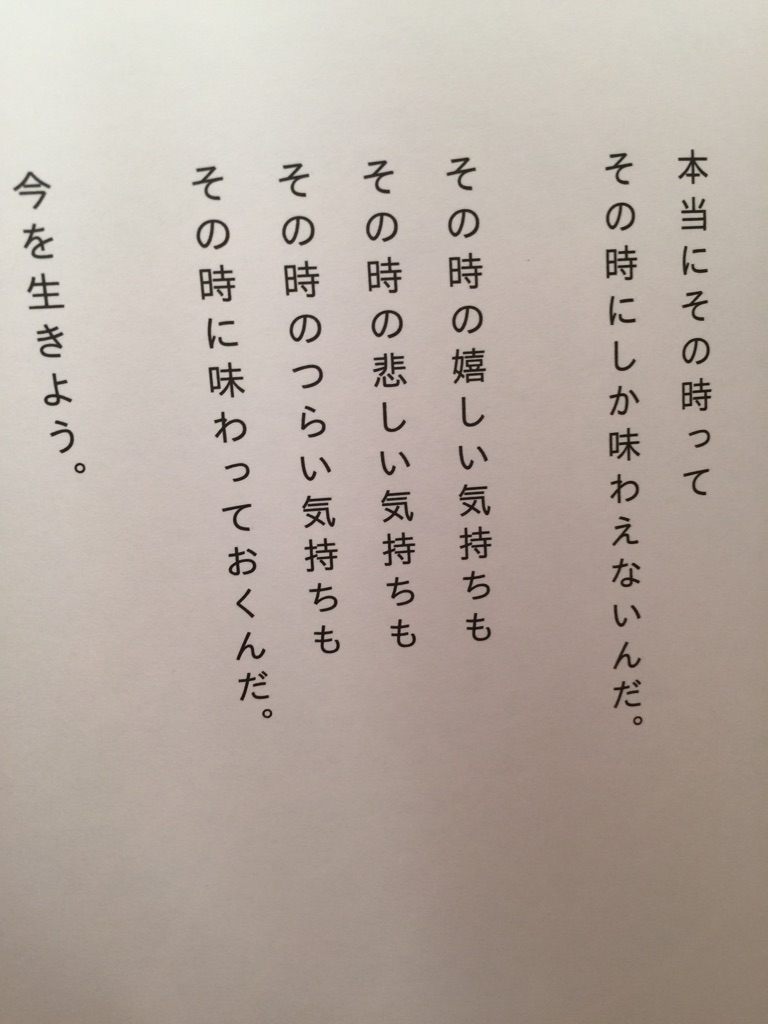 本当にその時って
その時にしか味わえないんだ。
その時の嬉しい気持ちも
その時の悲しい気持ちも
その時のつらい気持ちも
その時に味わっておくんだ。
今を生きよう。